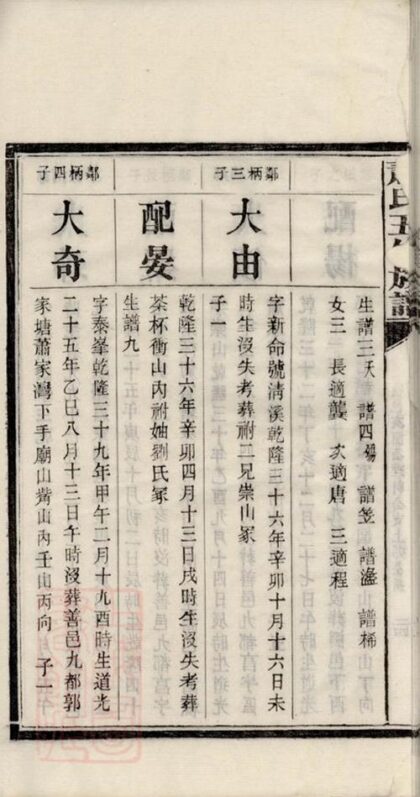 氏五修族譜
生譜三夭 譜四殤 譜笠 譜 譜桸
女三 長適龔 次適唐 三適程
鄰柄三子
大由
字新命號清溪乾隆三十六年辛卯十月十六日未
時生沒失考葬祔二兄崇山冢
子一
配晏
乾隆三十六年辛卯四月十三日戌時生沒失考葬
茶杯衝山內祔妯劉氏冢
生譜九
鄰柄四子
大奇
字秦峯乾隆三十九年甲午二月十九酉時生道光
二十五年乙巳八月十三日午時沒葬善邑九都郭
家塘蕭家灣下手廟山嘴山內壬山丙向 子一